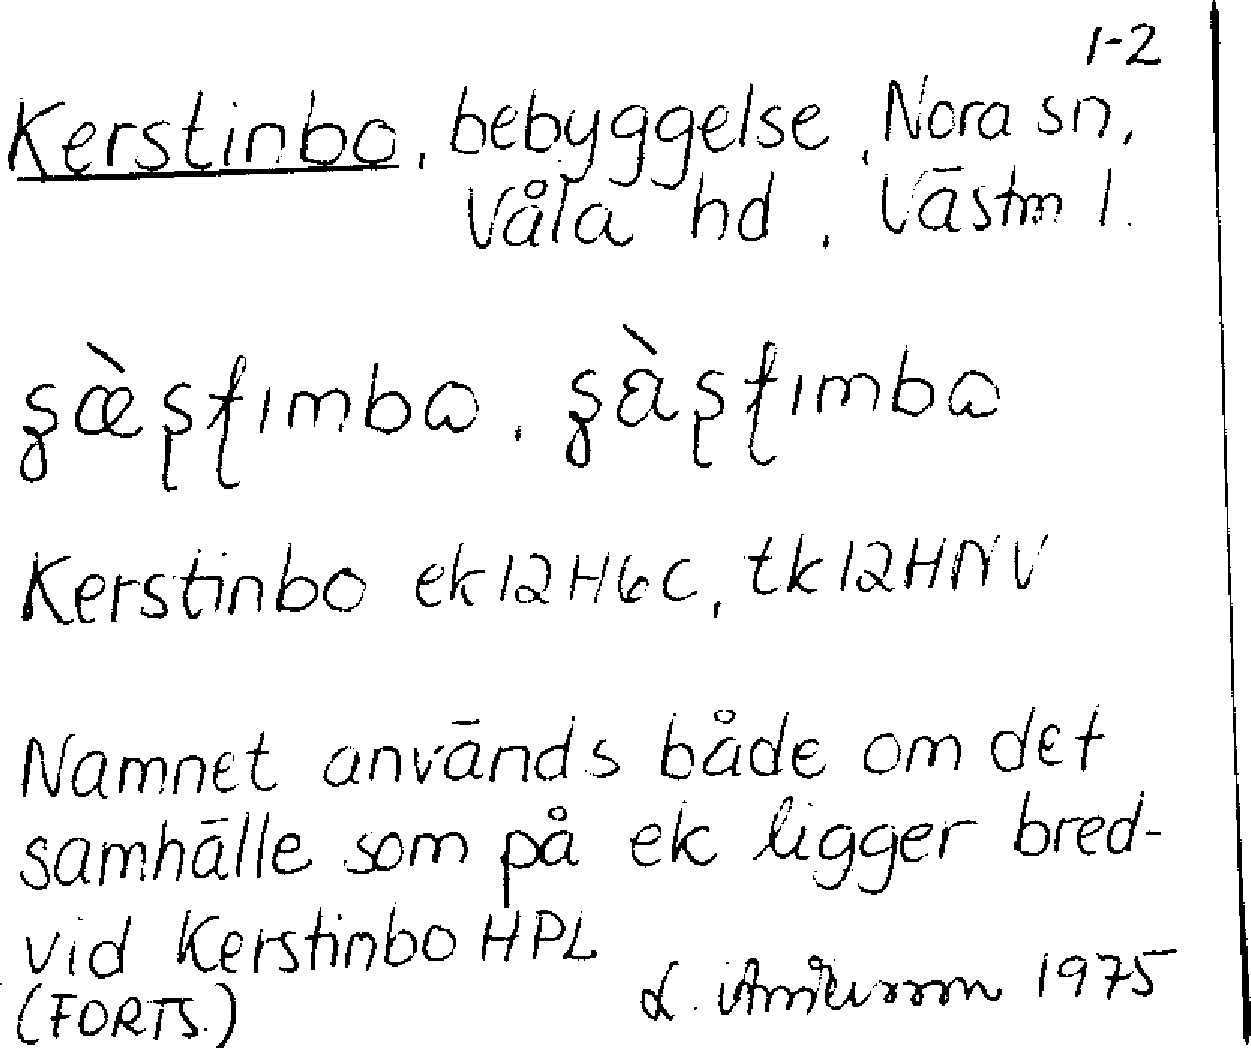 1-2
Kerstinbo, bebyggelse, Nora sn,
Våla hd, Västm l.
Kerstinbo ek 12H6c, tk 12HNV
Namnet används både om det
samhälle som på ek ligger bred-
vid Kerstinbo HPL
(FORTS.) L. Andersson 1975